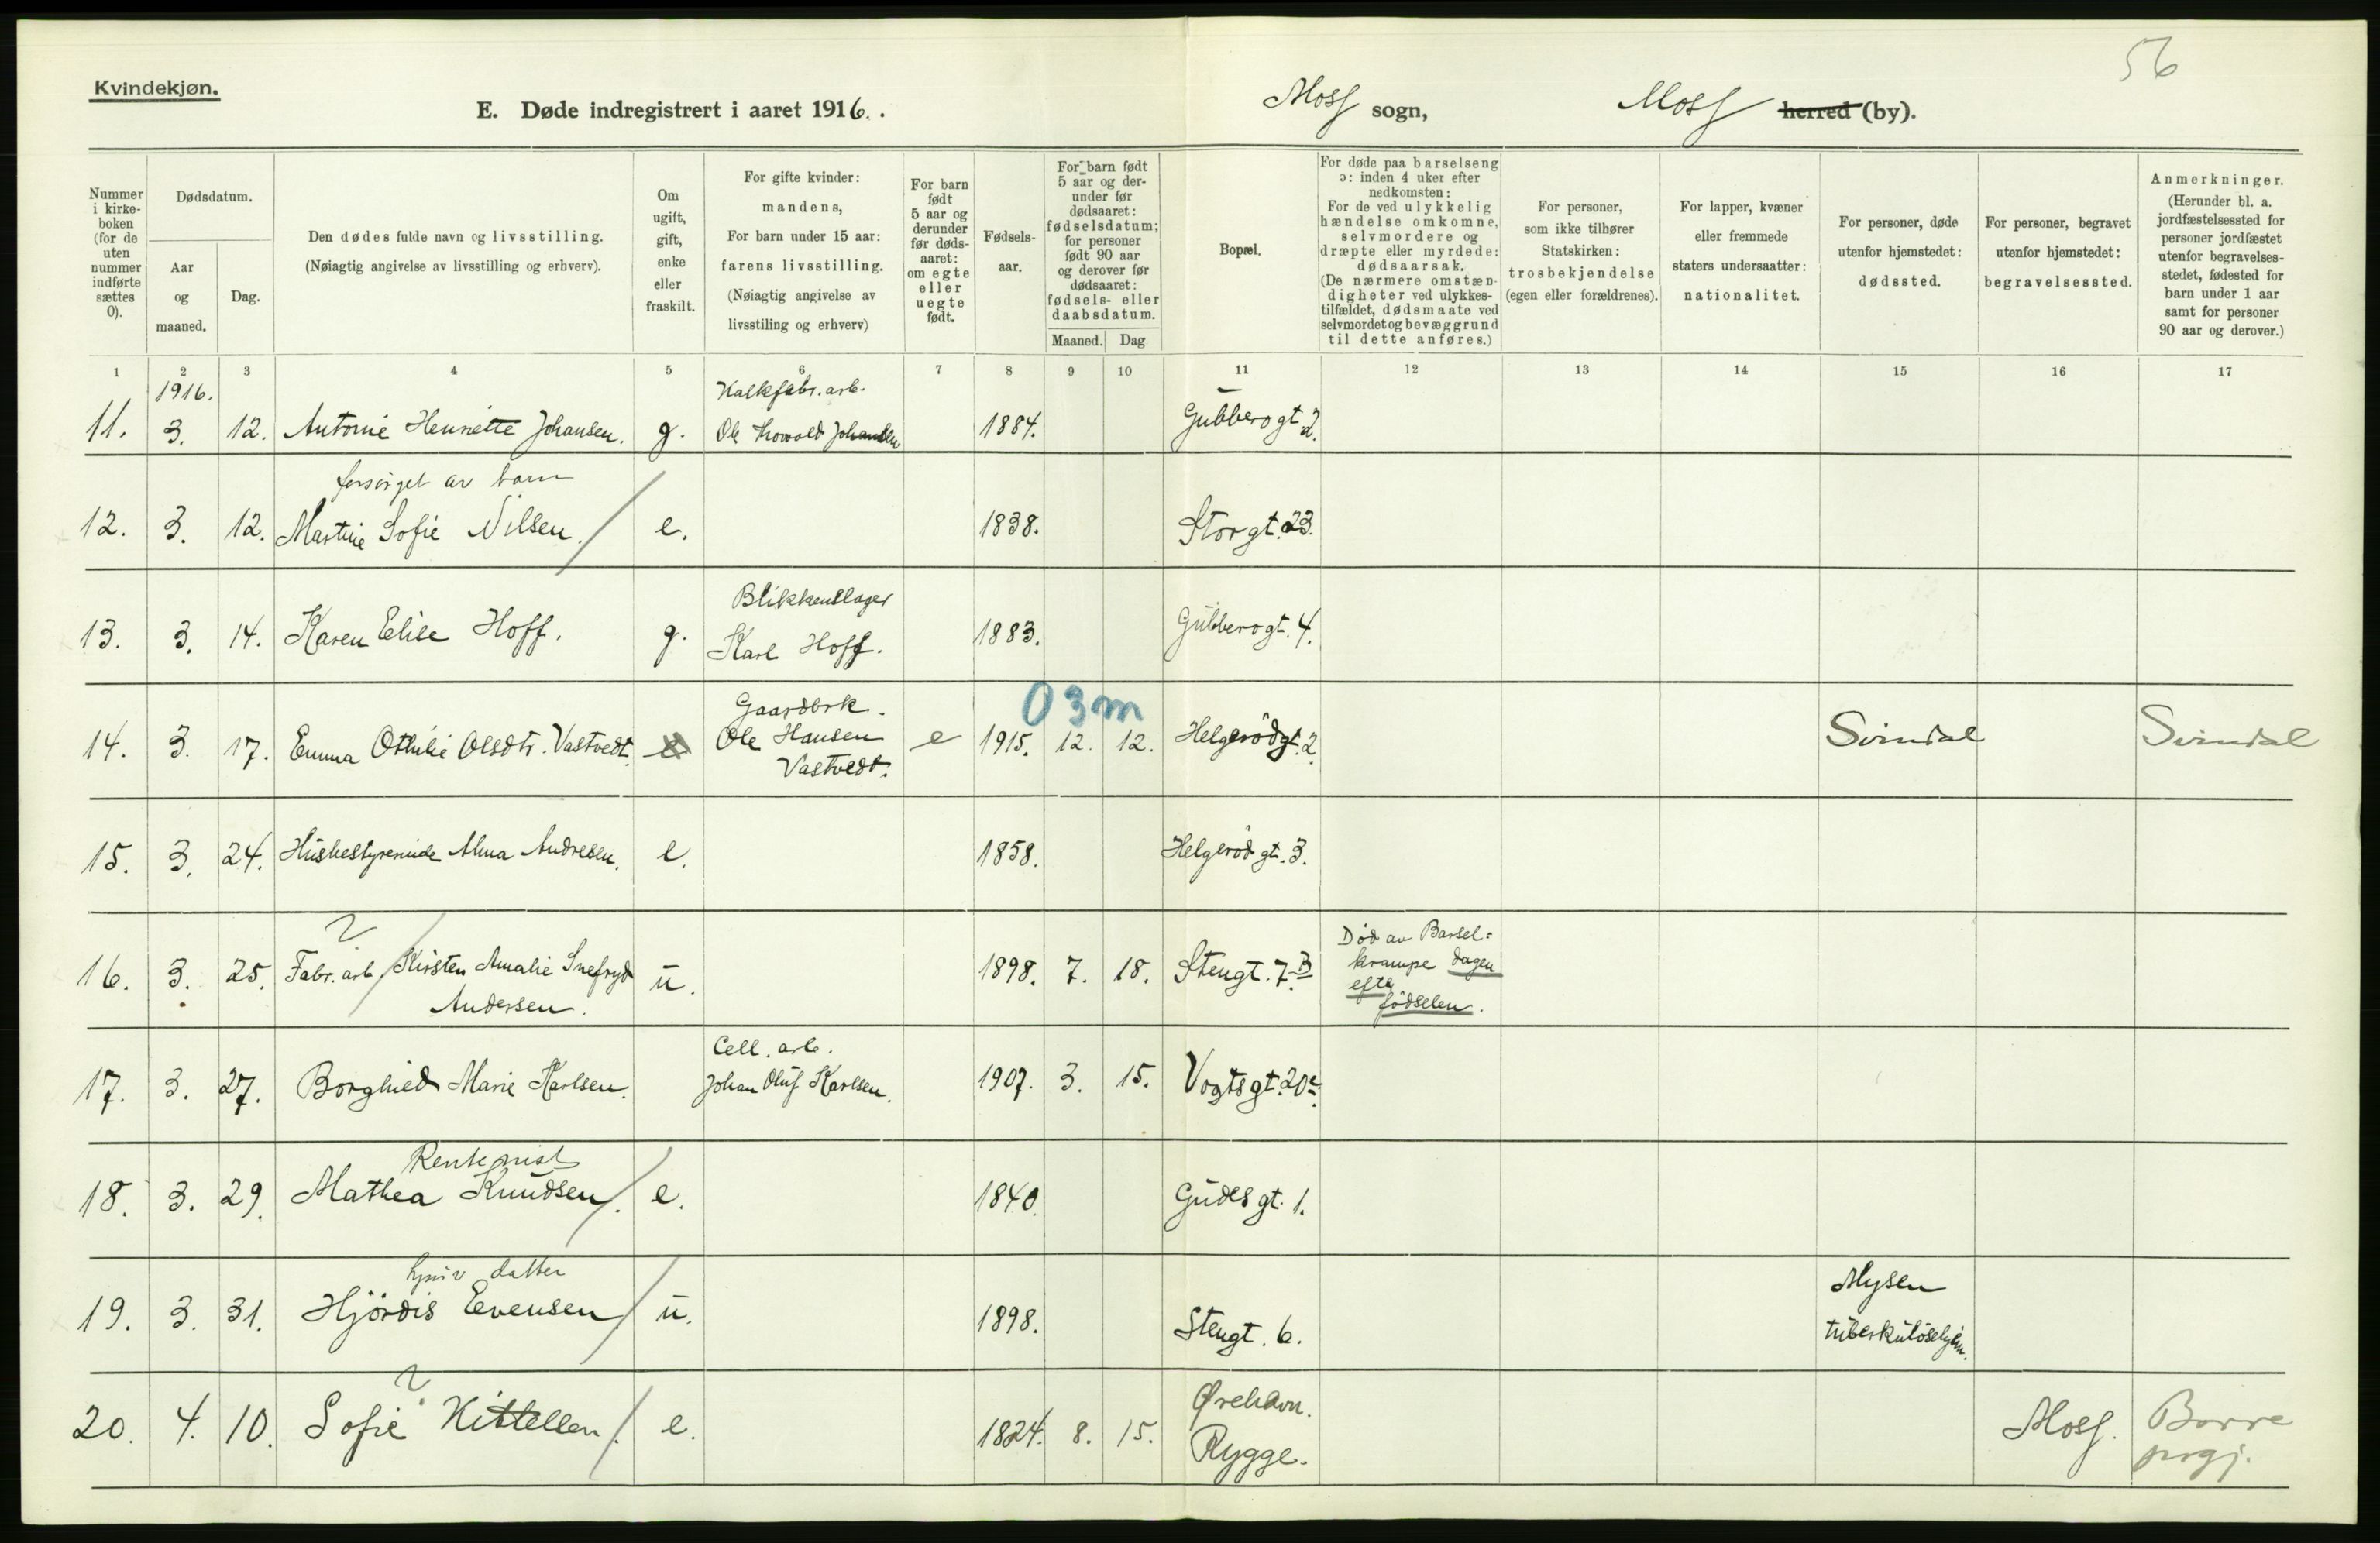 56
Kvindekjøn.
E. Døde indregistrert i aaret 1916. .
Moss sogn,
Moss herred (by).
Nummer i kirke- boken (for de uten nummer indførte sættes 0).
Dødsdatum.
Aar og maaned.
Dag.
Den dødes fulde navn og livsstilling.
(Nøiagtig angivelse av livsstilling og erhverv).
Om ugift, gift, enke eller fraskilt.
For gifte kvinder:
mandens,
For barn under 15 aar:
farens livsstilling.
(Nøiagtig angivelse av
livsstiling og erhverv)
For barn født 5 aar og derunder før døds- aaret: om egte eller uegte født.
Fødsels- aar.
For barn født 5 aar og der- under før dødsaaret: fødselsdatum; for personer født 90 aar og derover før dødsaaret: fødsels- eller daabsdatum.
Maaned.
Dag
Bopæl.
For døde paa barselseng
ɔ: inden 4 uker efter
nedkomsten:
For de ved ulykkelig
hændelse omkomne,
selvmordere og
dræpte eller myrdede:
dødsaarsak.
(De nærmere omstæn-
digheter ved ulykkes-
tilfældet, dødsmaate ved
selvmordet og bevæggrund
til dette anføres.)
For personer,
som ikke tilhører
Statskirken:
trosbekjendelse
(egen eller forældrenes).
For lapper, kvæner
eller fremmede
staters undersaatter:
nationalitet.
For personer, døde
utenfor hjemstedet:
dødssted.
For personer, begravet
utenfor hjemstedet:
begravelsessted.
Anmerkninger.
(Herunder bl. a.
jordfæstelsessted for
personer jordfæstet
utenfor begravelses-
stedet, fødested for
barn under 1 aar
samt for personer
90 aar og derover.)
1 2 3 4 5 6 7 8 9 10 11 12 13 14 15 16 17
1916.
Kalkfabr. arb.
11. 3. 12. Antonie Henriette Johansen. g. Ole Thorvald Johansen. 1884. Gubberogt 2.
forsørget av barn
12. 3. 12. Martine Sofie Nilsen. e. 1838. Storgt. 23.
Blikkenslager
13. 3. 14. Karen Elise Hoff. g. Karl Hoff. 1883. Gubberogt. 4.
Gaardbrk. 0 3m
14. 3. 17. Emma Othilie Olsdtr. Vastvedt. Ole Hansen Vastvedt. e 1915. 12. 12. Helgerødgt. 2. Svindal Svindal
15. 3. 24. Husbestyrerinde Alma Andresen. e. 1858. Helgerød gt. 3.
?
16. 3. 25. Fabr. arb. Kirsten Amalie Snefryd Andersen. u. 1898. 7. 18. Stengt. 7B Død av Barsel-
krampe dagen
efter
fødselen.
Cell. arb.
17. 3. 27. Borghild Marie Karlsen. Johan Oluf Karlsen. 1907. 3. 15. Vogts gt. 20c.
Rentenist
18. 3. 29. Mathea Knudsen. e. 1840. Gudes gt. 1.
datter
19. 3. 31. Hjørdis Evensen u. 1898. Stengt. 6. Mysen
tuberkuløsehjem.
?
20. 4. 10. Sofie Kittelsen. e. 1824. 8. 15. Ørehavn.
Rygge. Moss. Borre
prgj.